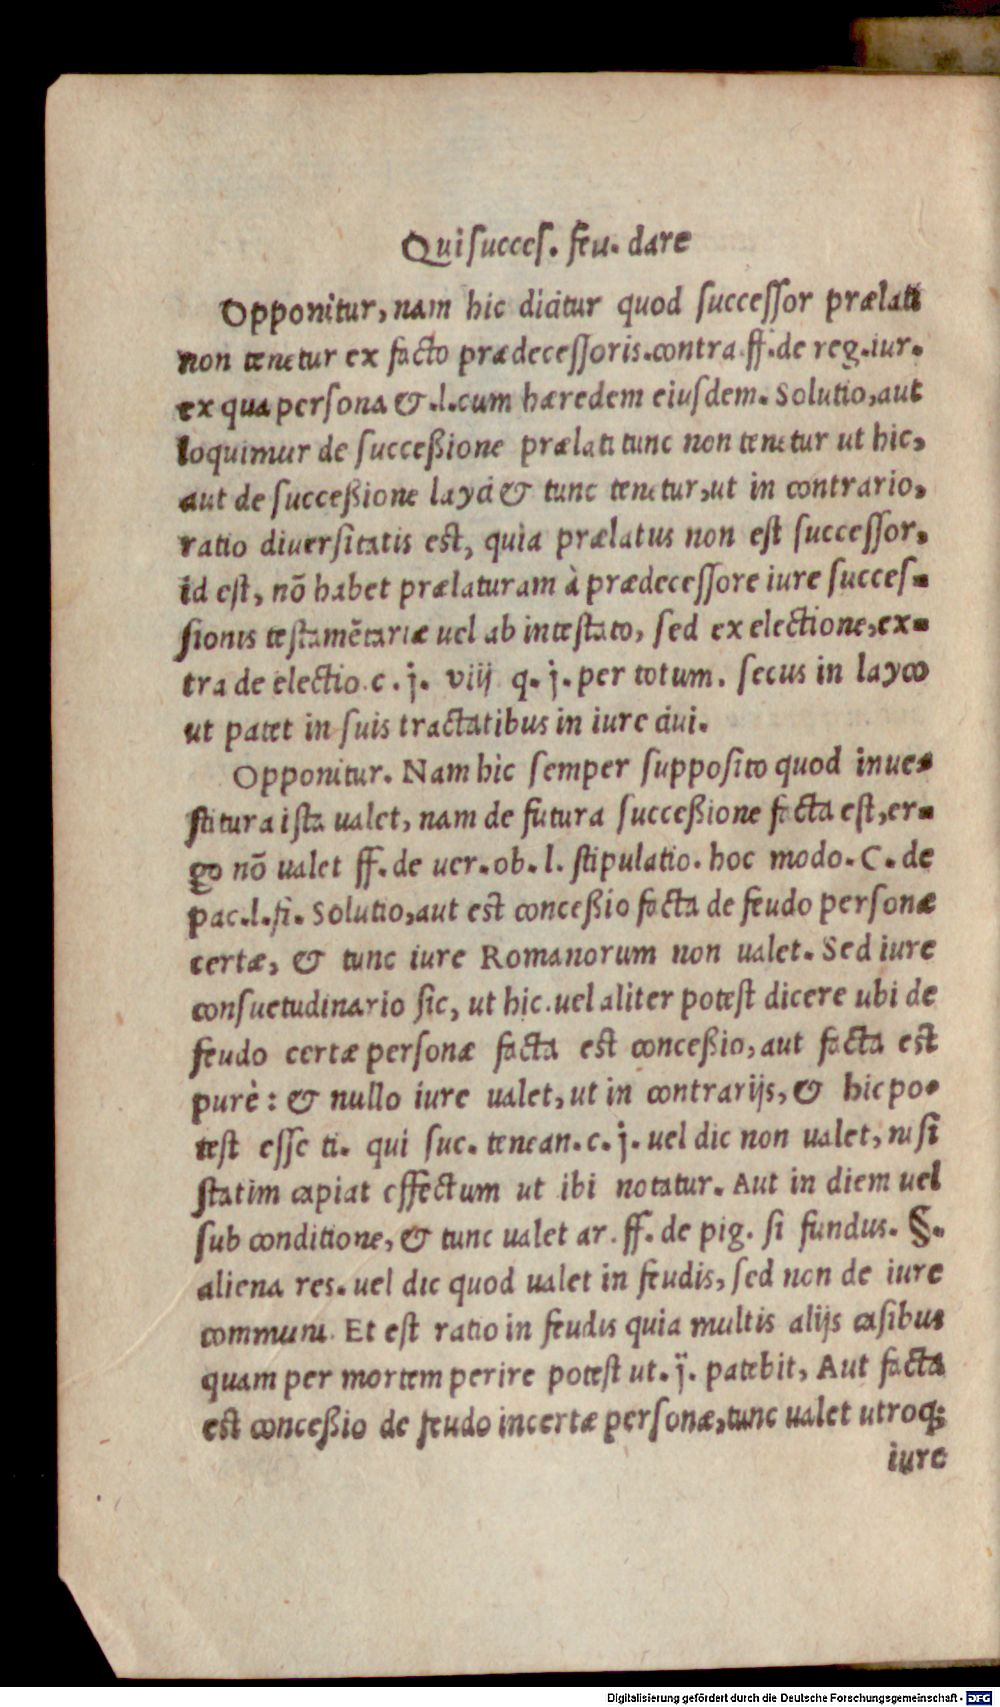 Qui succes. feu. dare
Opponitur, nam hic dicitur quod successor prælati
non tenetur ex facto prædecessoris. contra ff. de reg. iur.
ex qua persona & .l. cum hæredem eiusdem. Solutio, aut
loquimur de succeßione prælati tunc non tenetur ut hic,
aut de succeßione layci & tunc tenetur, ut in contrario,
ratio diuersitatis est, quia prælatus non est successor,
id est, nõ habet prælaturam à prædecessore iure succes-
sionis testamẽtariæ uel ab intestato, sed ex electione, ex-
tra de electio. c. j. viij q. j. per totum. secus in layco
ut patet in suis tractatibus in iure ciui.
Opponitur. Nam hic semper supposito quod inue-
stitura ista ualet, nam de futura succeßione facta est, er-
go nõ ualet ff. de uer. ob. l. stipulatio. hoc modo. C. de
pac. l. fi. Solutio, aut est conceßio facta de feudo personæ
certæ, & tunc iure Romanorum non ualet. Sed iure
consuetudinario sic, ut hic. uel aliter potest dicere ubi de
feudo certæ personæ facta est conceßio, aut facta est
purè: & nullo iure ualet, ut in contrarijs, & hic po-
test esse ti. qui suc. tenean. c. j. uel dic non ualet, nisi
statim capiat effectum ut ibi notatur. Aut in diem uel
sub conditione, & tunc ualet ar. ff. de pig. si fundus. §.
aliena res. uel dic quod ualet in feudis, sed non de iure
communi. Et est ratio in feudis quia multis alijs casibus
quam per mortem perire potest ut. j. patebit, Aut facta
est conceßio de feudo incertæ personæ, tunc ualet utroq;
iure
Digitalisierung gefördert durch die Deutsche Forschungsgemeinschaft - DFG